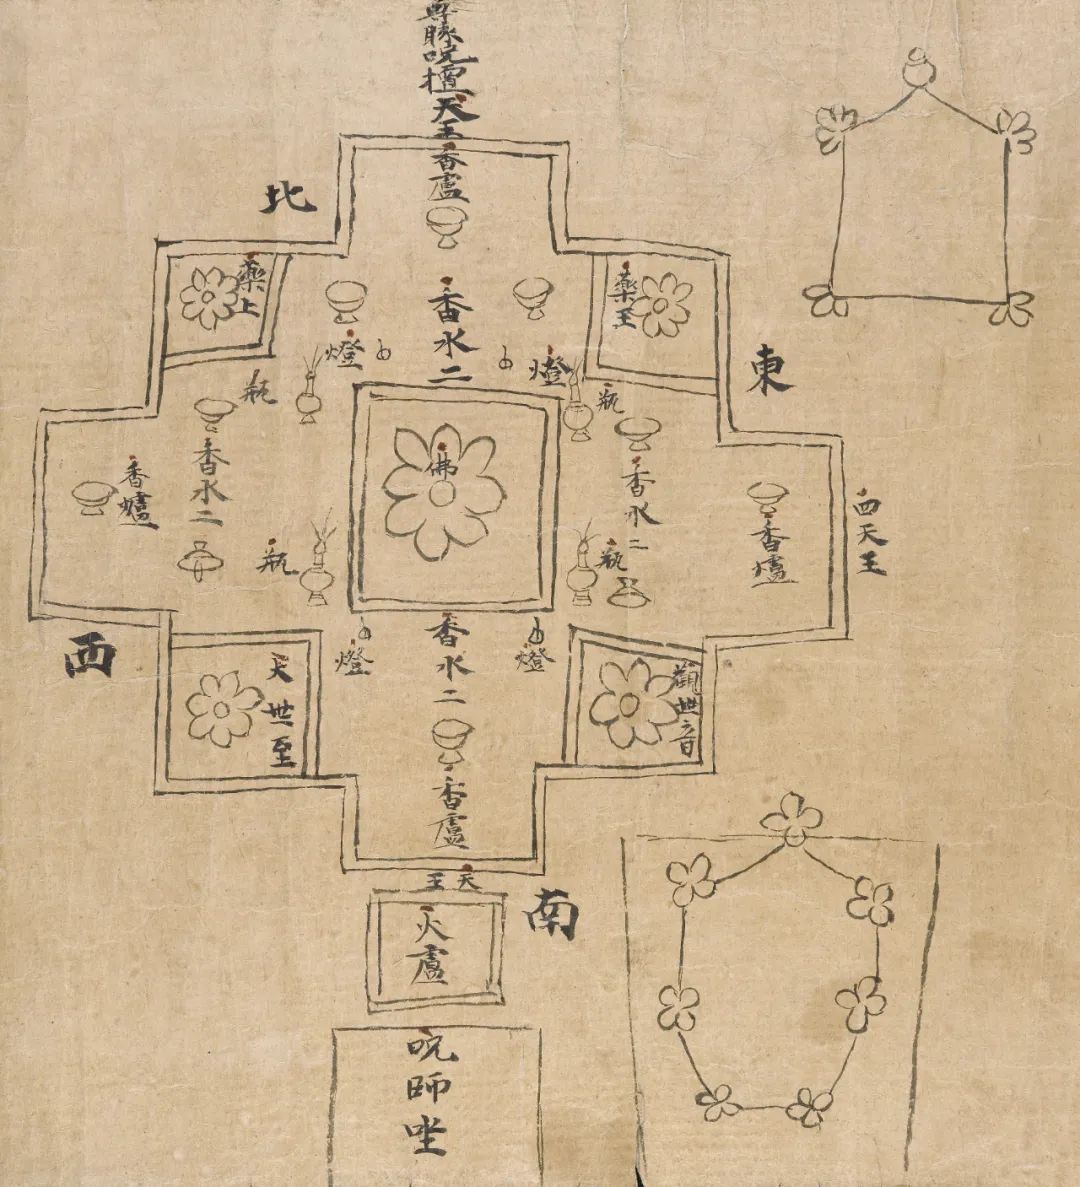 尊勝咒壇
天王
香盧
北
藥上
香水二
藥王
燈
燈
瓶
瓶
東
佛
香爐
香水二
香水二
香爐
四天王
瓶
瓶
西
燈
香水二
燈
大世至
觀世音
香盧
天王
南
火盧
咒師坐